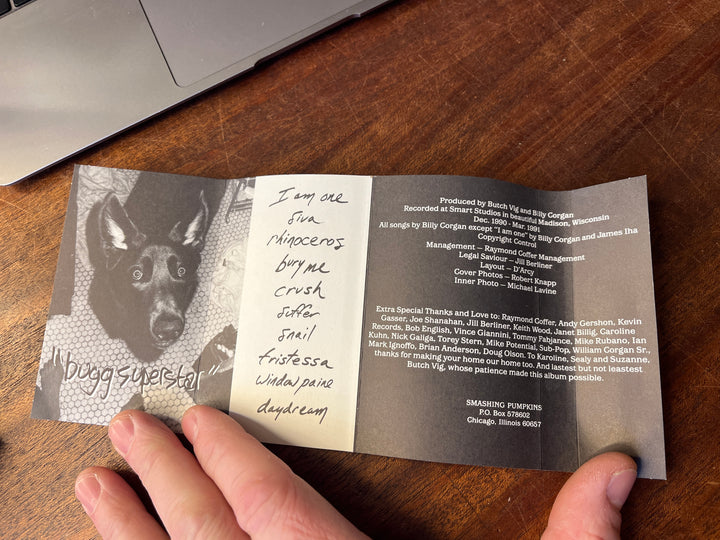 "buggsuperstar"
I am one
siva
rhinoceros
bury me
crush
suffer
snail
tristessa
window paine
daydream
Produced by Butch Vig and Billy Corgan
Recorded at Smart Studios in beautiful Madison, Wisconsin
Dec. 1990 - Mar. 1991
All songs by Billy Corgan except "I am one" by Billy Corgan and James Iha
Copyright Control
Management — Raymond Coffer Management
Legal Saviour — Jill Berliner
Layout — D'Arcy
Cover Photos — Robert Knapp
Inner Photo — Michael Lavine
Extra Special Thanks and Love to: Raymond Coffer, Andy Gershon, Kevin
Gasser, Joe Shanahan, Jill Berliner, Keith Wood, Janet Billig, Caroline
Records, Bob English, Vince Giannini, Tommy Fabjance, Mike Rubano, Ian
Kuhn, Nick Galiga, Torey Stern, Mike Potential, Sub-Pop, William Corgan Sr.,
Mark Ignoffo, Brian Anderson, Doug Olson. To Karoline, Sealy and Suzanne,
thanks for making your home our home too. And lastest but not leastest
Butch Vig, whose patience made this album possible.
SMASHING PUMPKINS
P.O. Box 578602
Chicago, Illinois 60657